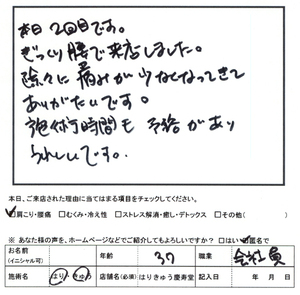 本日2回目です。
ぎっくり腰で来店しました。
徐々に痛みが少なくなってきて
ありがたいです。
施術時間も予約があり
うれしいです。
本日、ご来店された理由に当てはまる項目をチェックしてください。
☑肩こり・腰痛 □むくみ・冷え性 □ストレス解消・癒し・デトックス □その他( )
※ あなた様の声を、ホームページなどでご紹介してもよろしいですか? □はい ☑匿名で
お名前
(イニシャル可) 年齢 37 職業 会社員
施術名 はり・きゅう 店舗名(必須) はりきゅう慶寿堂 記入日 年 月 日